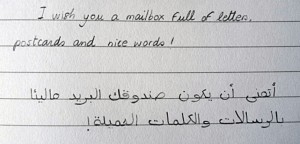 I wish you a mailbox full of letters,
postcards and nice words!
أتمنى أن يكون صندوقك البريد مالينًا
بالرسالات والكلمات الجميلة!